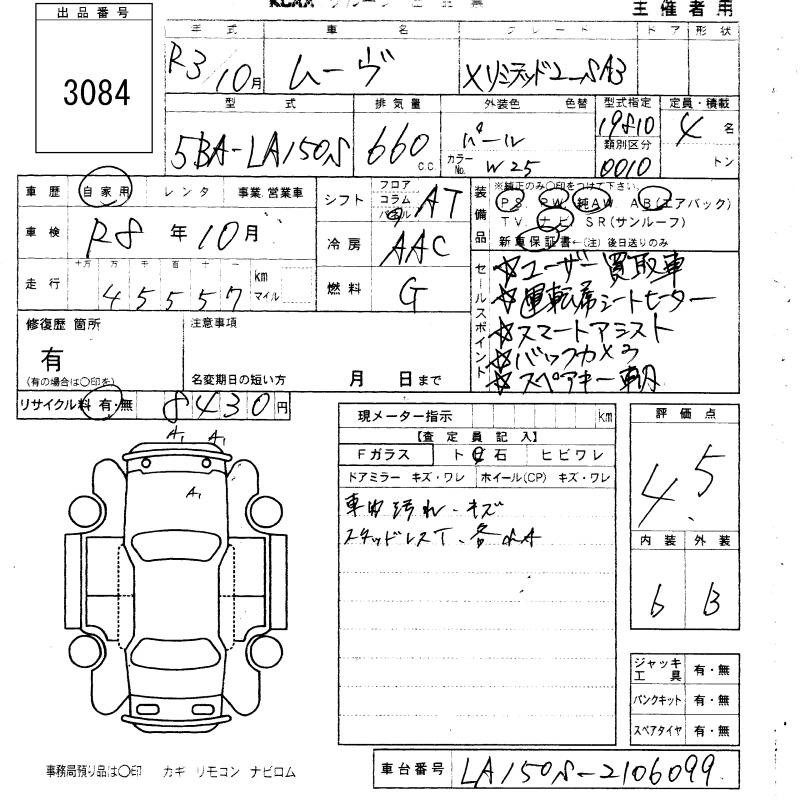 出品番号
3084
主催者用
年式 車名 グレード ドア形状
R3/10月 ムーヴ XリミテッドⅡ SAⅢ
型式 排気量 外装色 色替 型式指定 定員・積載
5BA-LA150S 660 c.c. パール 19810 4名
カラーNo. W25 類別区分 0010 トン
車歴 自家用 レンタ 事業営業車
車検 R8年10月
走行 十万 万 千 百 十 一
45557 km マイル
シフト フロア コラム パネル AT
冷房 AAC
燃料 G
装備品 ※純正のみ〇印をつけて下さい。
PS PW 純AW AB(エアバック)
TV ナビ SR(サンルーフ)
新車保証書←(注)後日送りのみ
セールスポイント
☆ユーザー買取車
☆運転席シートヒーター
☆スマートアシスト
☆バックカメラ
☆スペアキー車内
修復歴 箇所
有
(有の場合は〇印を)
注意事項
名変期日の短い方 月 日まで
リサイクル料 有・無 8430円
現メーター指示 km
【査定員記入】
Fガラス ト 石 ヒビワレ
ドアミラー キズ・ワレ ホイール(CP) キズ・ワレ
車内汚れ・キズ
スタッドレスT、
A1 A1
A1
評価点
4.5
内装 外装
6 B
ジャッキ工具 有・無
パンクキット 有・無
スペアタイヤ 有・無
事務局預り品は〇印 カギ リモコン ナビロム
車台番号 LA150S-2106099